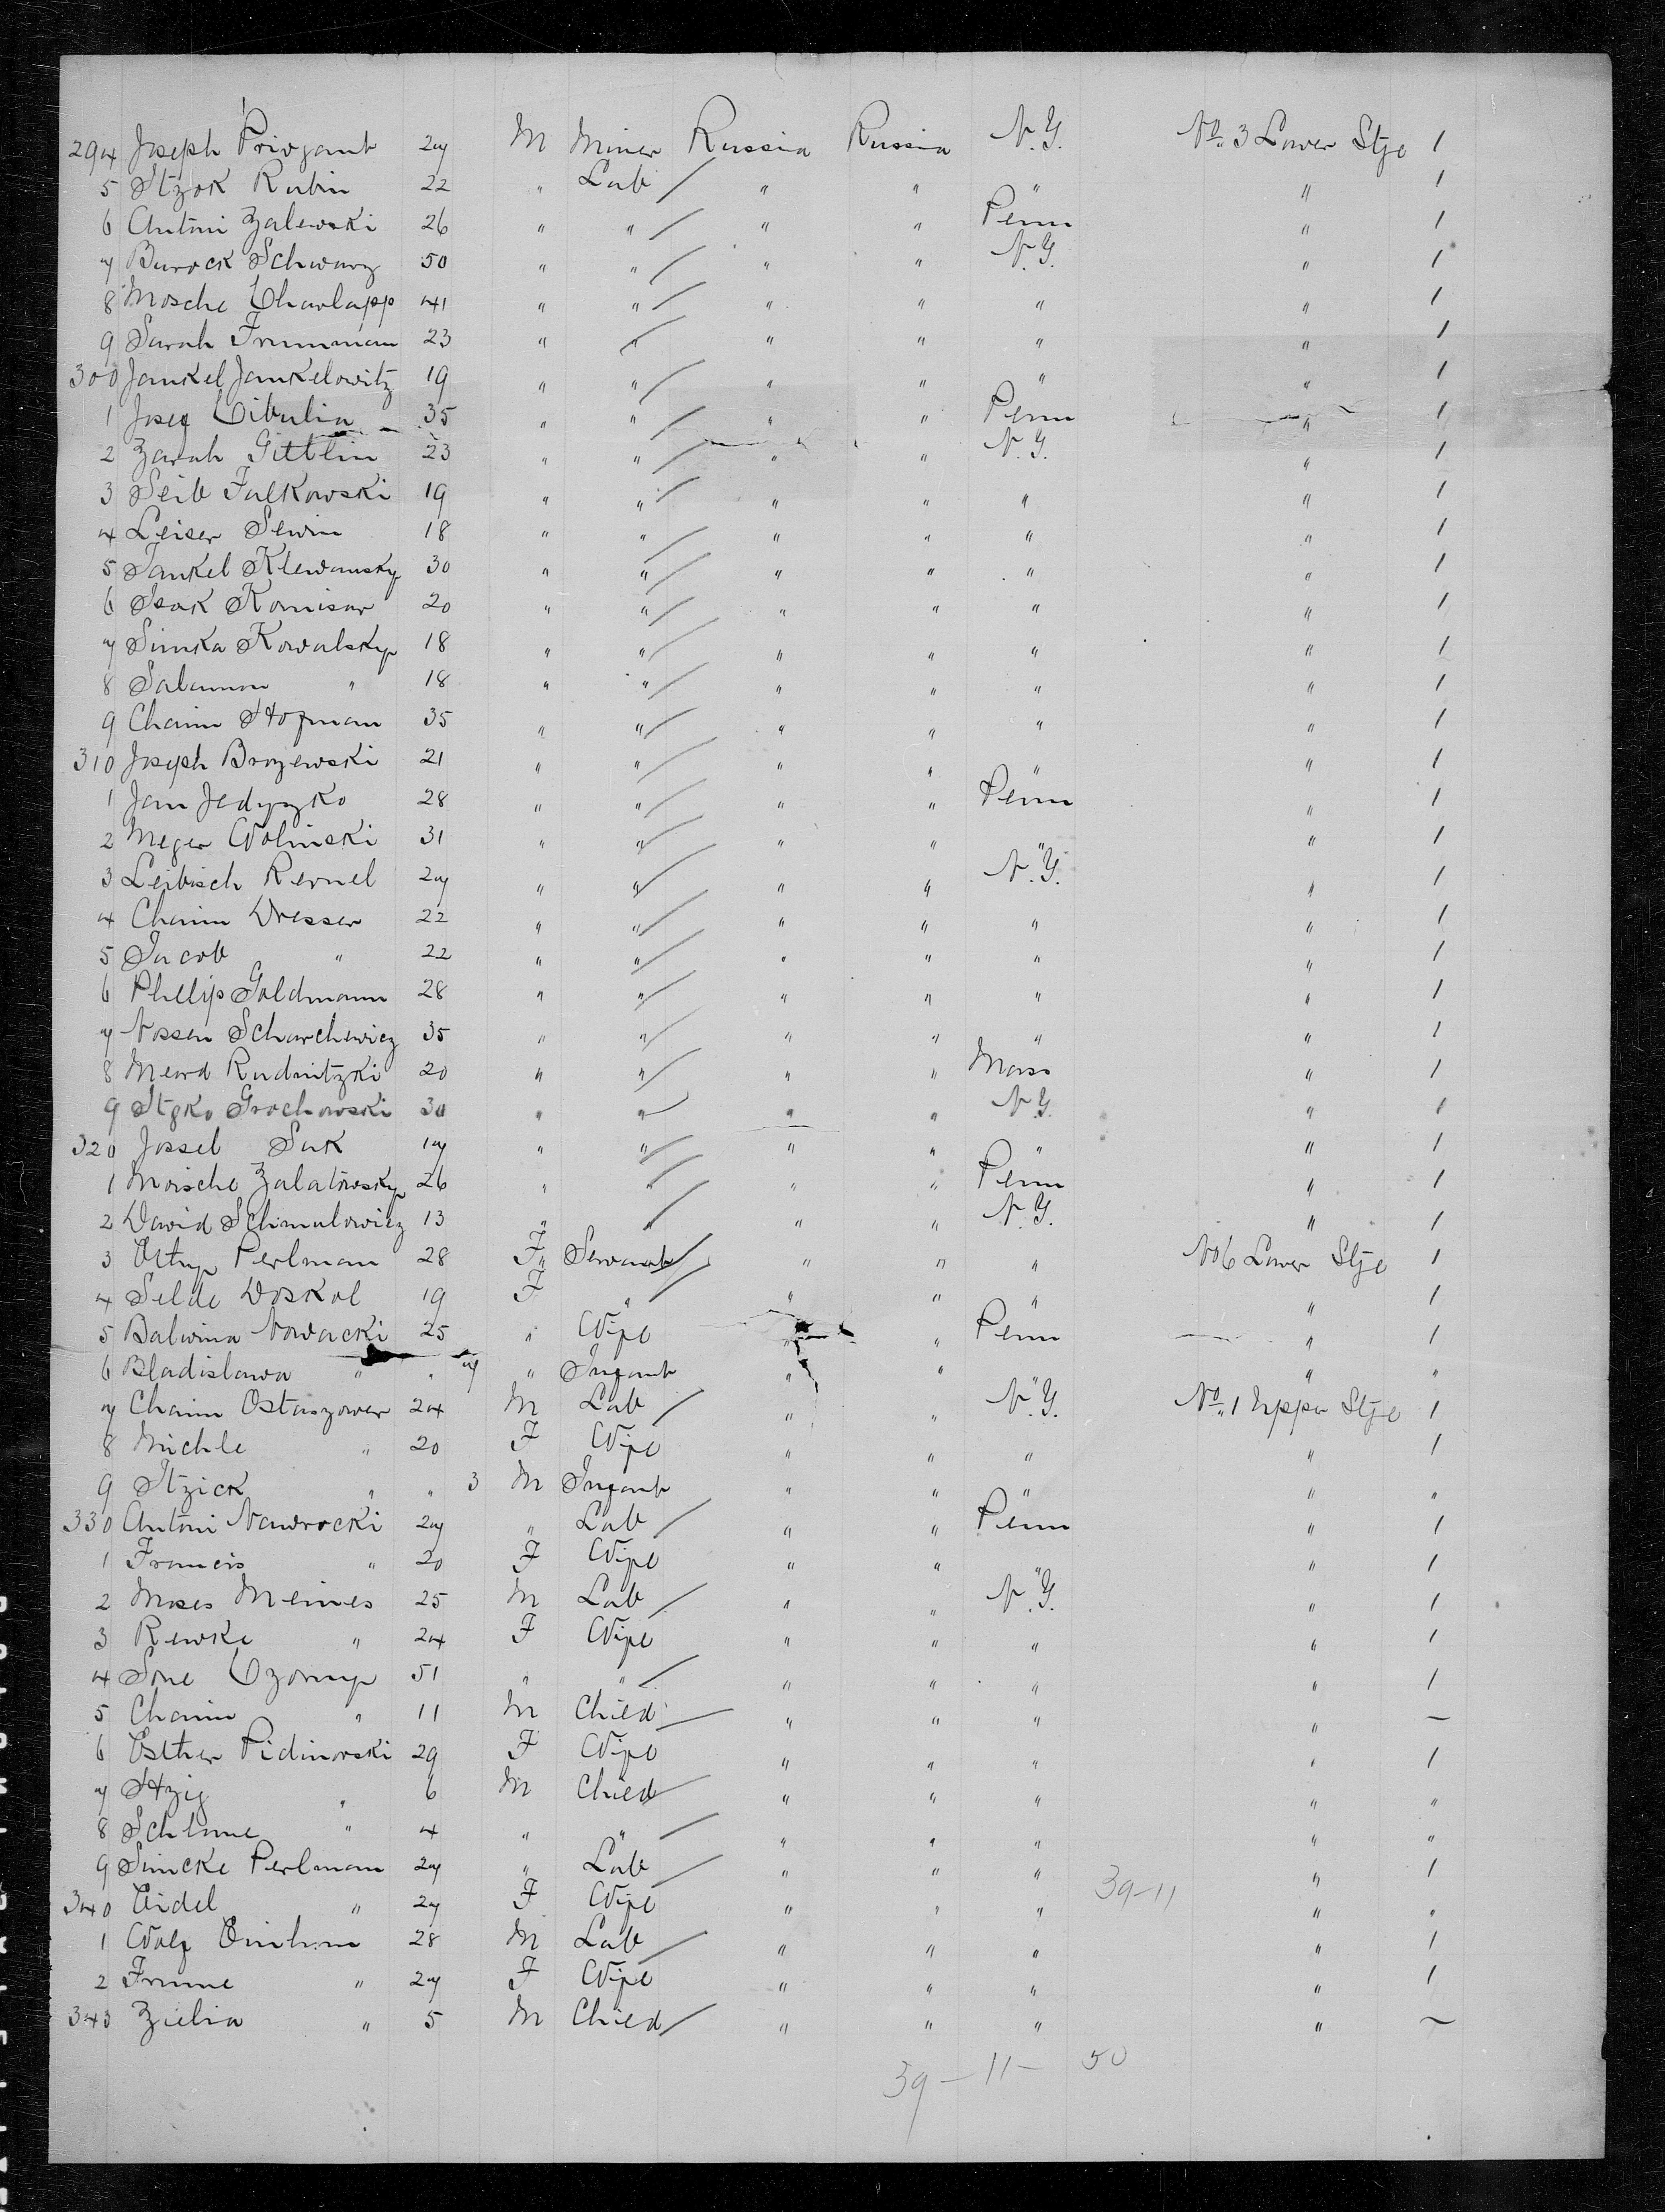 294 Joseph Privzant 27 M Miner Russia Russia N.Y. No. 3 Lower Stge 1
5 Itzok Rubin 22 " Lab / " " " " 1
6 Antoni Zalewski 26 " " / " " Penn " 1
7 Burock Schwarz 50 " " / " " N.Y. " 1
8 Mosche Charlapp 41 " " / " " " " 1
9 Sarah Frumman 23 " " / " " " " 1
300 Jankel Jankelowitz 19 " " / " " " " 1
1 Josef Cibulia 35 " " / " " Penn " 1
2 Zarah Gittlin 23 " " / " " N.Y. " 1
3 Leib Falkowski 19 " " / " " " " 1
4 Leiser Lewin 18 " " / " " " " 1
5 Jankel Klewansky 30 " " / " " " " 1
6 Isak Komisar 20 " " / " " " " 1
7 Simka Kowalsky 18 " " / " " " " 1
8 Salamon " 18 " " / " " " " 1
9 Chaim Hofman 35 " " / " " " " 1
310 Joseph Brozewski 21 " " / " " " " 1
1 Jan Jedyzko 28 " " / " " Penn " 1
2 Meger Wolinski 31 " " / " " " " 1
3 Leibisch Rernel 27 " " / " " N.Y. " 1
4 Chaim Dresser 22 " " / " " " " 1
5 Jacob " 22 " " / " " " " 1
6 Phllip Goldmann 28 " " / " " " " 1
7 Nossen Scharchewicz 35 " " / " " " " 1
8 Meard Rudnitzki 20 " " / " " Mass " 1
9 Itzko Grochowski 30 " " / " " N.Y. " 1
320 Jossel Sak 17 " " / " " " " 1
1 Moische Zalatowsky 26 " " / " " Penn " 1
2 David Schmulowicz 13 " " / " " N.Y. " 1
3 Perlman 28 F " Servant / " " " No 6 Lower Stge 1
4 Selde Doskol 19 F " / " " " " 1
5 Balwina Nowacki 25 " Wife " " Penn " 1
6 Bladislawa " " 7 " Infant " " " " "
7 Chaim Ostaszower 24 M Lab / " " N.Y. No. 1 Upper Stge 1
8 Michle " 20 F Wife " " " " 1
9 Itzick " " 3 M Infant " " " " "
330 Antoni Nawrocki 27 " Lab / " " Penn " 1
1 Francis " 20 F Wife " " " " 1
2 Moses Meines 25 M Lab / " " N.Y. " 1
3 Rewke " 24 F Wife " " " " 1
4 Sore Czorny 51 " " / " " " " 1
5 Chaim " 11 M Child / " " " " ~
6 Esther Pidinorski 29 F Wife " " " " 1
7 Itzig " 6 M Child " " " " "
8 Schlome " 4 " " / " " " " "
9 Simcke Perlman 27 " Lab / " " " 39-11 " 1
340 Eidel " 27 F Wife " " " " "
1 Wolf 28 M Lab / " " " " 1
2 Frume " 27 F Wife " " " " 1
343 Zielia " 5 M Child / " " " " ~
39 - 11 - 50